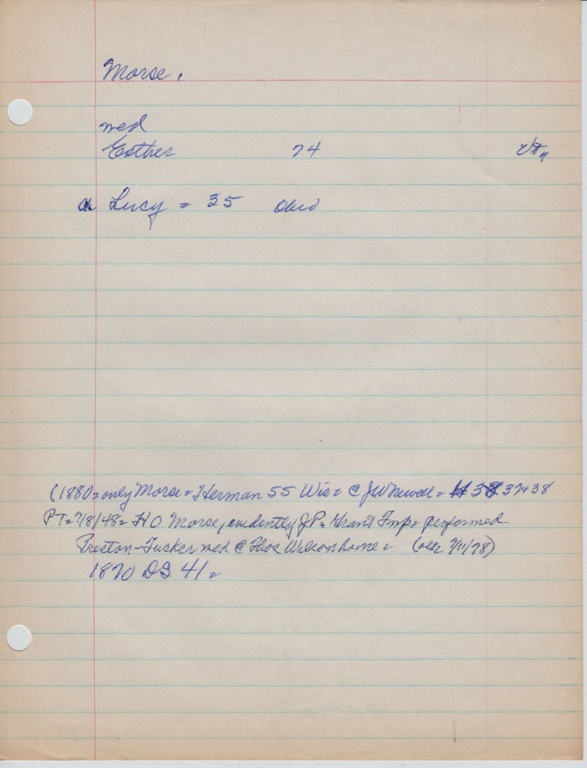 Morse.
wed
Esther 74
Lucy = 35 Ohio
(1880 = only Morse = Herman 55 Wis = @ J W Newell = 37+38
PT = 7/8/48 = H O Morse, evidently J.P. Grant Twp = performed
Preston-Tucker wed @ Thos Wilson home =
1870 DS 41 =